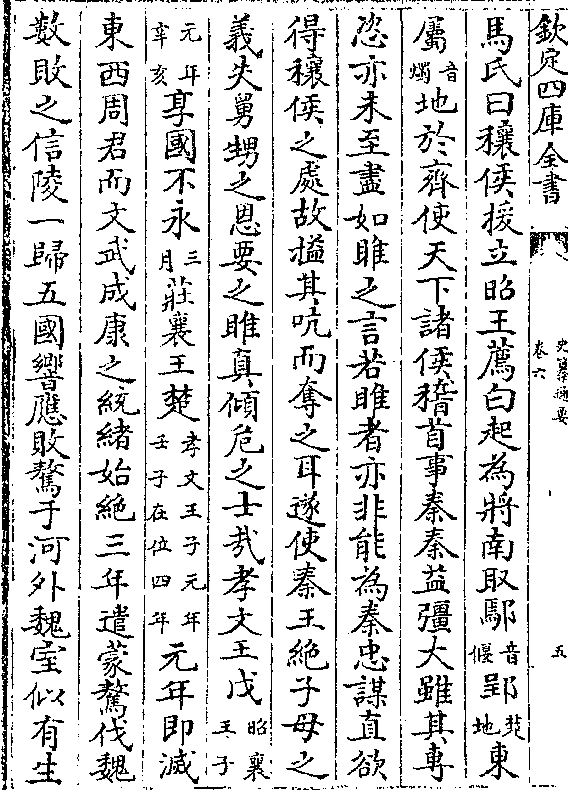 欽定四庫全書
史纂通要
卷六
五
馬氏曰穰侯援立昭王薦白起為將南取鄢音偃郢楚地東
屬音燭地於齊使天下諸侯稽首事秦秦益彊大雖其專
恣亦未至盡如雎之言若雎者亦非能為秦忠謀直欲
得穰侯之處故搤其吭而奪之耳遂使秦王絶子母之
義失舅甥之恩要之雎真傾危之士哉孝文王戊昭襄王子
元年辛亥享國不永三月莊襄王楚孝文王子元年壬子在位四年元年即滅
東西周君而文武成康之統緒始絶三年遣蒙驁伐魏
數敗之信陵一歸五國響應敗驁于河外魏室似有生